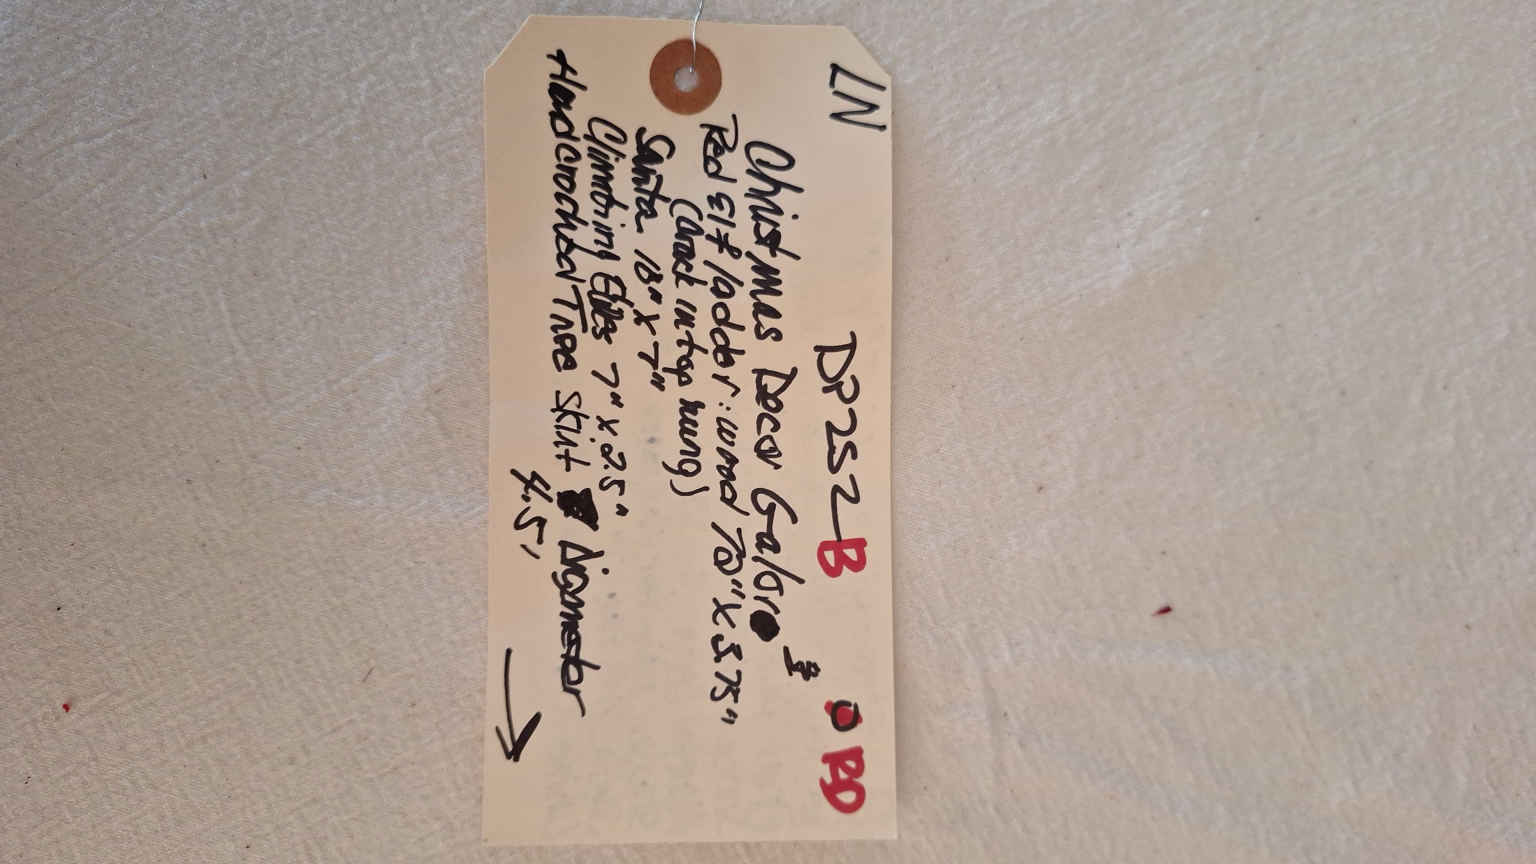 LN
DP252-B
Christmas Decor Galore
Red Elf ladder: wood 70" x 5.75"
(Crack in top rung)
Santa 18" x 7"
Climbing Elves 7" x 2.5"
Hand crocheted Tree Skirt Diameter
4.5'